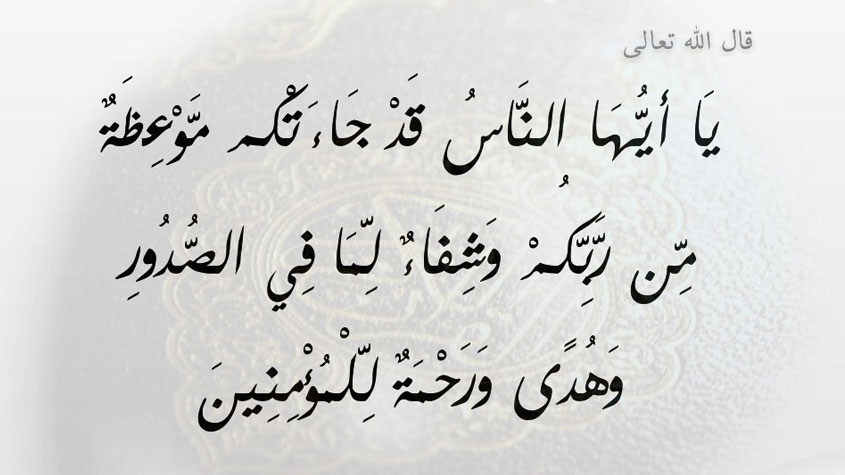 قال الله تعالى
يَا أَيُّهَا النَّاسُ قَدْ جَاءَتْكُم مَّوْعِظَةٌ
مِّن رَّبِّكُمْ وَشِفَاءٌ لِّمَا فِي الصُّدُورِ
وَهُدًى وَرَحْمَةٌ لِّلْمُؤْمِنِينَ